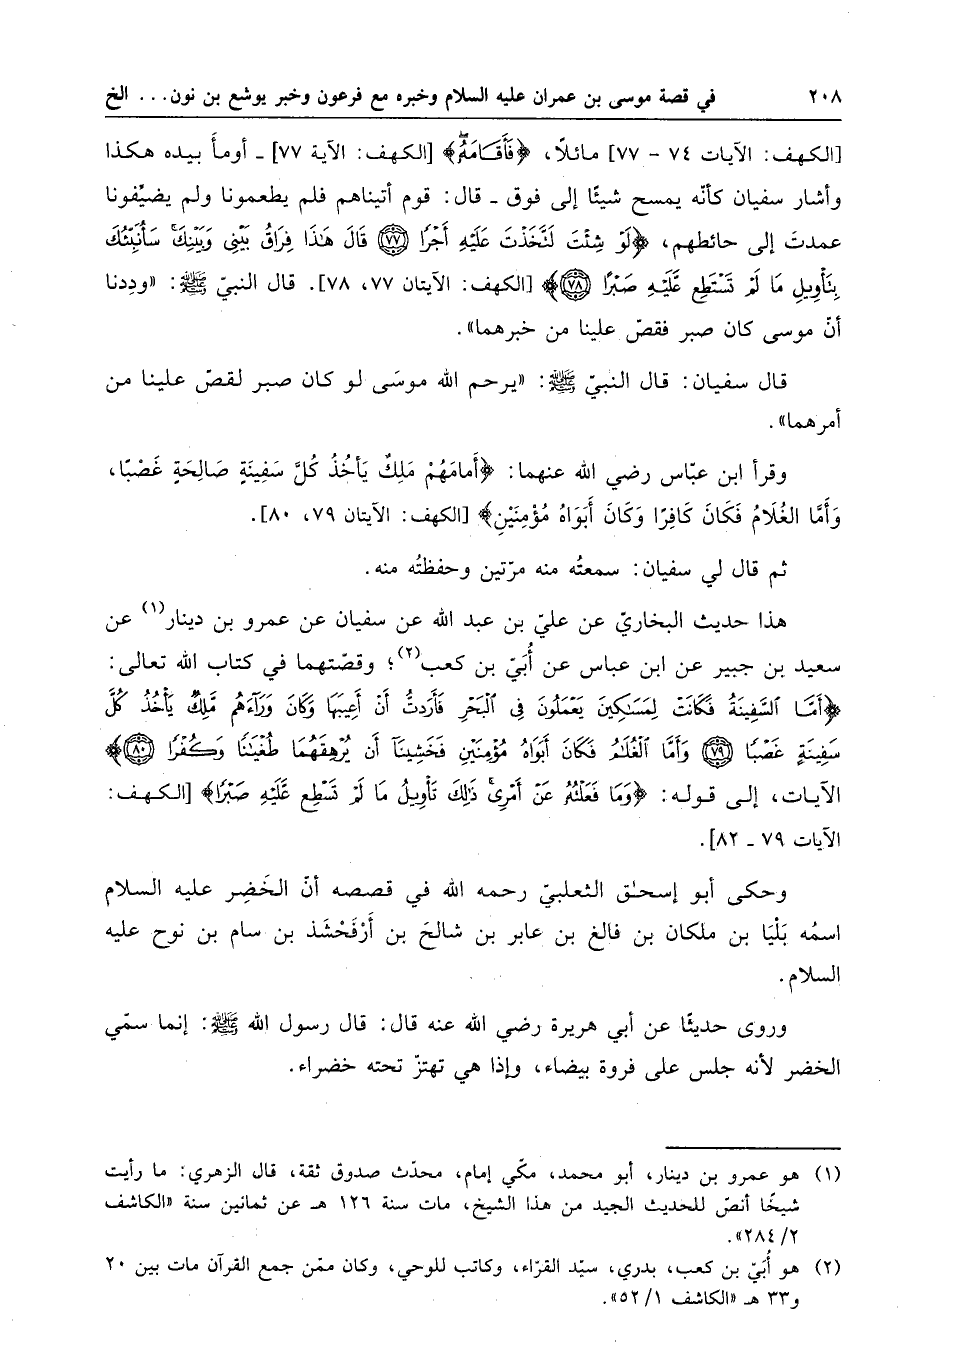 ٢٠٨ في قصة موسى بن عمران عليه السلام وخبره مع فرعون وخبر يوشع بن نون... الخ
[الكهف: الآيات ٧٤ - ٧٧] مائلًا، ﴿فَأَقَامَهُۥۖ﴾ [الكهف: الآية ٧٧] ـ أومأَ بيده هكذا
وأشار سفيان كأنّه يمسح شيئًا إلى فوق ـ قال: قوم أتيناهم فلم يطعمونا ولم يضيِّفونا
عمدتَ إلى حائطهم، ﴿لَوْ شِئْتَ لَتَّخَذْتَ عَلَيْهِ أَجْرًا ﴿٧٧﴾ قَالَ هَٰذَا فِرَاقُ بَيْنِى وَبَيْنِكَۚ سَأُنَبِّئُكَ
بِتَأْوِيلِ مَا لَمْ تَسْتَطِع عَّلَيْهِ صَبْرًا ﴿٧٨﴾﴾ [الكهف: الآيتان ٧٧، ٧٨]. قال النبيّ ﷺ: «ودِدنا
أنّ موسى كان صبر فقصّ علينا من خبرهما».
قال سفيان: قال النبيّ ﷺ: «يرحم الله موسَى لو كان صبر لقصّ علينا من
أمرهما».
وقرأ ابن عبّاس رضي الله عنهما: ﴿أَمامَهُمْ مَلِكٌ يَأخُذُ كُلَّ سَفِينَةٍ صَالِحَةٍ غَصْبًا،
وَأَمَّا الغُلَامُ فَكَانَ كَافِرًا وَكَانَ أَبَوَاهُ مُؤْمِنَيْنِ﴾ [الكهف: الآيتان ٧٩، ٨٠].
ثم قال لي سفيان: سمعتُه منه مرّتين وحفظتُه منه.
هذا حديث البخاريّ عن عليّ بن عبد الله عن سفيان عن عمرو بن دينار(١) عن
سعيد بن جبير عن ابن عباس عن أُبَيّ بن كعب(٢)؛ وقصّتهما في كتاب الله تعالى:
﴿أَمَّا ٱلسَّفِينَةُ فَكَانَتْ لِمَسَٰكِينَ يَعْمَلُونَ فِى ٱلْبَحْرِ فَأَرَدتُّ أَنْ أَعِيبَهَا وَكَانَ وَرَآءَهُم مَّلِكٌ يَأْخُذُ كُلَّ
سَفِينَةٍ غَصْبًا ﴿٧٩﴾ وَأَمَّا ٱلْغُلَٰمُ فَكَانَ أَبَوَاهُ مُؤْمِنَيْنِ فَخَشِينَآ أَن يُرْهِقَهُمَا طُغْيَٰنًا وَكُفْرًا ﴿٨٠﴾﴾
الآيات، إلى قوله: ﴿وَمَا فَعَلْتُهُۥ عَنْ أَمْرِىۚ ذَٰلِكَ تَأْوِيلُ مَا لَمْ تَسْطِع عَّلَيْهِ صَبْرًا﴾ [الكهف:
الآيات ٧٩ ـ ٨٢].
وحكى أبو إسحٰق الثعلبيّ رحمه الله في قصصه أنّ الخَضِر عليه السلام
اسمُه بَلْيَا بن ملكان بن فالغ بن عابر بن شالخَ بن أَرْفَخْشَذ بن سام بن نوح عليه
السلام.
وروى حديثًا عن أبي هريرة رضي الله عنه قال: قال رسول الله ﷺ: إنما سمّي
الخضر لأنه جلس على فروة بيضاء، وإذا هي تهتزّ تحته خضراء.
(١) هو عمرو بن دينار، أبو محمد، مكّي إمام، محدّث صدوق ثقة، قال الزهري: ما رأيت
شيخًا أنصّ للحديث الجيد من هذا الشيخ، مات سنة ١٢٦ هـ عن ثمانين سنة «الكاشف
٢/ ٢٨٤».
(٢) هو أُبَيّ بن كعب، بدري، سيّد القرّاء، وكاتب للوحي، وكان ممّن جمع القرآن مات بين ٢٠
و٣٣ هـ «الكاشف ١/ ٥٢».